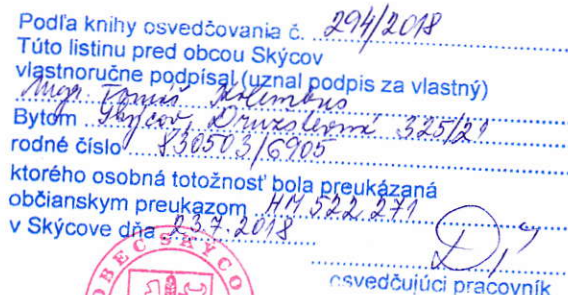 Podľa knihy osvedčovania č. 294/2018
Túto listinu pred obcou Skýcov
vlastnoručne podpísal (uznal podpis za vlastný)
Mgr. Tomáš
Bytom Skýcov, Družstevná 325/21
rodné číslo 830503/6905
ktorého osobná totožnosť bola preukázaná
občianskym preukazom HM 522 271
v Skýcove dňa 23.7.2018
OBEC SKÝCO
osvedčujúci pracovník